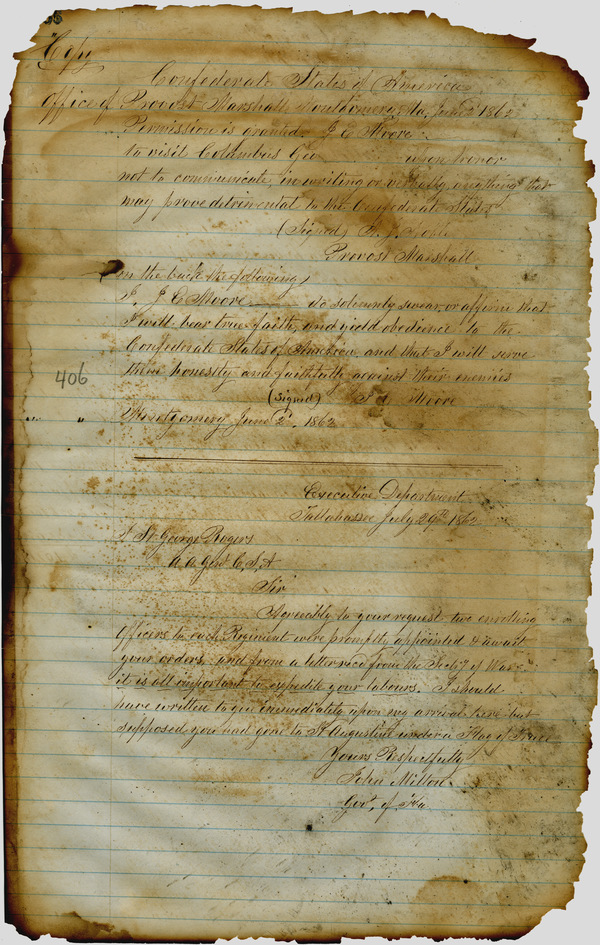 Copy
Confederate States of America
Office of Provost Marshall Montgomery Ala, June 2d 1862
Permission is granted J C Moore
to visit Columbus Geo upon honor
not to communicate, in writing or verbally, anything that
may prove detrimental to the Confederate States
(Signed)
Provost Marshall
on the back the following)
I, J C Moore do solemnly swear, or affirm that
I will bear true faith, and yield obedience to the
Confederate States of America, and that I will serve
them honestly and faithfully against their enemies
406
(Signed) J C Moore
" " Montgomery June 2d, 1862
Executive Department
Tallahassee July 29th 1862
St George Rogers
A A Genl C, S, A
Sir
Agreeably to your request two enrolling
Officers to each Regiment were promptly appointed & await
your orders, and from a letter recd from the Secty of War
it is all important to expedite your labours. I should
have written to you immediately upon my arrival here but
supposed you had gone to St Augustine under a Flag of Truce
Yours Respectfully
John Milton
Govr, of Fla